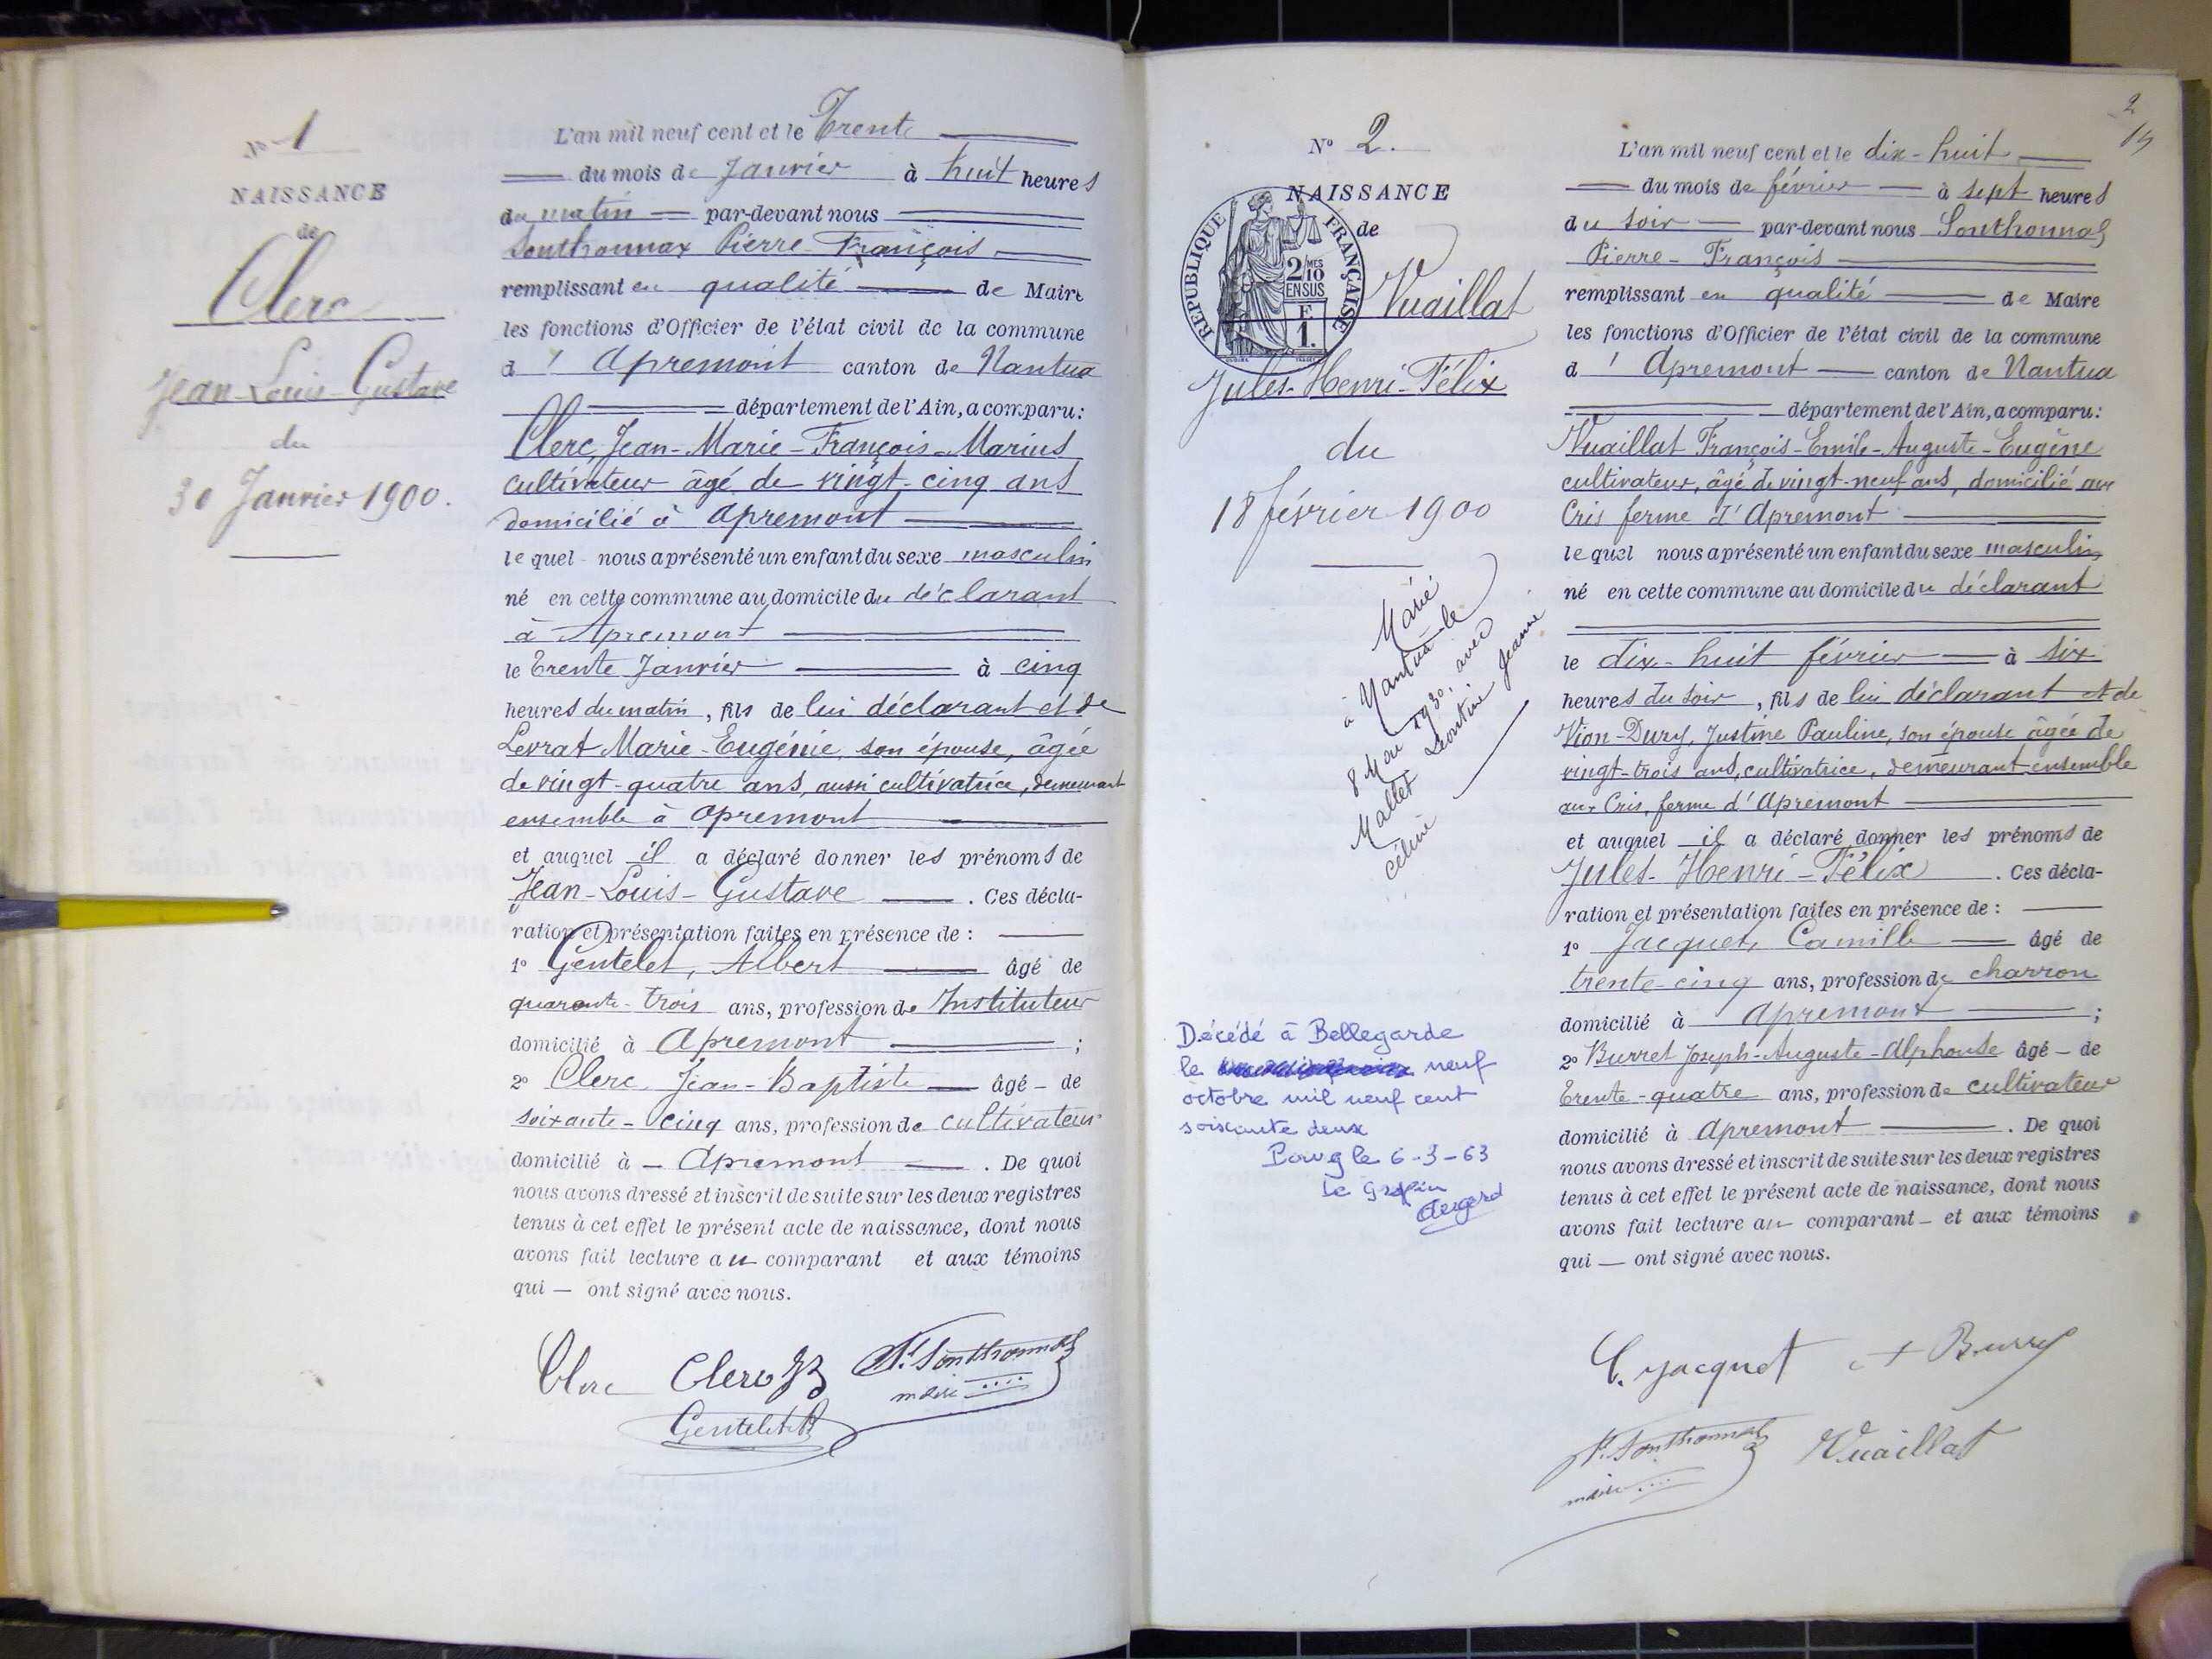 N° 1
NAISSANCE
de
Clerc
Jean-Louis-Gustave
du
30 Janvier 1900.
L'an mil neuf cent et le Trente
du mois de Janvier à huit heures
du matin par-devant nous
Sonthonnax Pierre-François
remplissant en qualité de Maire
les fonctions d'Officier de l'état civil de la commune
d' Apremont canton de Nantua
département de l'Ain, a comparu:
Clerc, Jean-Marie-François-Marius
cultivateur âgé de vingt-cinq ans
domicilié à Apremont
lequel nous a présenté un enfant du sexe masculin
né en cette commune au domicile du déclarant
à Apremont
le Trente Janvier à cinq
heures du matin, fils de lui déclarant et de
Levrat Marie-Eugénie, son épouse, âgée
de vingt-quatre ans, aussi cultivatrice, demeurant
ensemble à Apremont
et auquel il a déclaré donner les prénoms de
Jean-Louis-Gustave . Ces décla-
ration et présentation faites en présence de :
1° Gentelet, Albert âgé de
quarante-trois ans, profession de Instituteur
domicilié à Apremont ;
2° Clerc Jean-Baptiste âgé - de
soixante-cinq ans, profession de cultivateur
domicilié à - Apremont . De quoi
nous avons dressé et inscrit de suite sur les deux registres
tenus à cet effet le présent acte de naissance, dont nous
avons fait lecture au comparant et aux témoins
qui — ont signé avec nous.
Clerc Clerc JB P. Sonthonnax
maire
Gentelet A
2
N° 2.
NAISSANCE
de
RÉPUBLIQUE FRANÇAISE
2/MES
10
EN SUS
E
1.
Vuaillat
Jules-Henri-Félix
du
18 février 1900
Marié
à Nantua le
8 Mai 1930, avec
Mallet Léontine Jeanne
Céline
Décédé à Bellegarde
le neuf
octobre mil neuf cent
soixante deux
Bourg le 6-3-63
Le Greffier
L'an mil neuf cent et le dix-huit
du mois de février à sept heures
du soir par-devant nous Sonthonnax
Pierre-François
remplissant en qualité de Maire
les fonctions d'Officier de l'état civil de la commune
d' Apremont canton de Nantua
département de l'Ain, a comparu:
Vuaillat François-Emile-Auguste-Eugène
cultivateur, âgé de vingt-neuf ans, domicilié aux
Cris ferme d'Apremont
lequel nous a présenté un enfant du sexe masculin
né en cette commune au domicile du déclarant
le dix-huit février à six
heures du soir, fils de lui déclarant et de
Vion-Dury, Justine Pauline, son épouse âgée de
vingt-trois ans, cultivatrice, demeurant ensemble
aux Cris, ferme d'Apremont
et auquel il a déclaré donner les prénoms de
Jules-Henri-Félix . Ces décla-
ration et présentation faites en présence de :
1° Jacquet, Camille âgé de
trente-cinq ans, profession de charron
domicilié à Apremont ;
2° Burret Joseph-Auguste-Alphonse âgé - de
Trente-quatre ans, profession de cultivateur
domicilié à Apremont . De quoi
nous avons dressé et inscrit de suite sur les deux registres
tenus à cet effet le présent acte de naissance, dont nous
avons fait lecture au comparant - et aux témoins
qui — ont signé avec nous.
C. Jacquet A Burret
P. Sonthonnax Vuaillat
maire